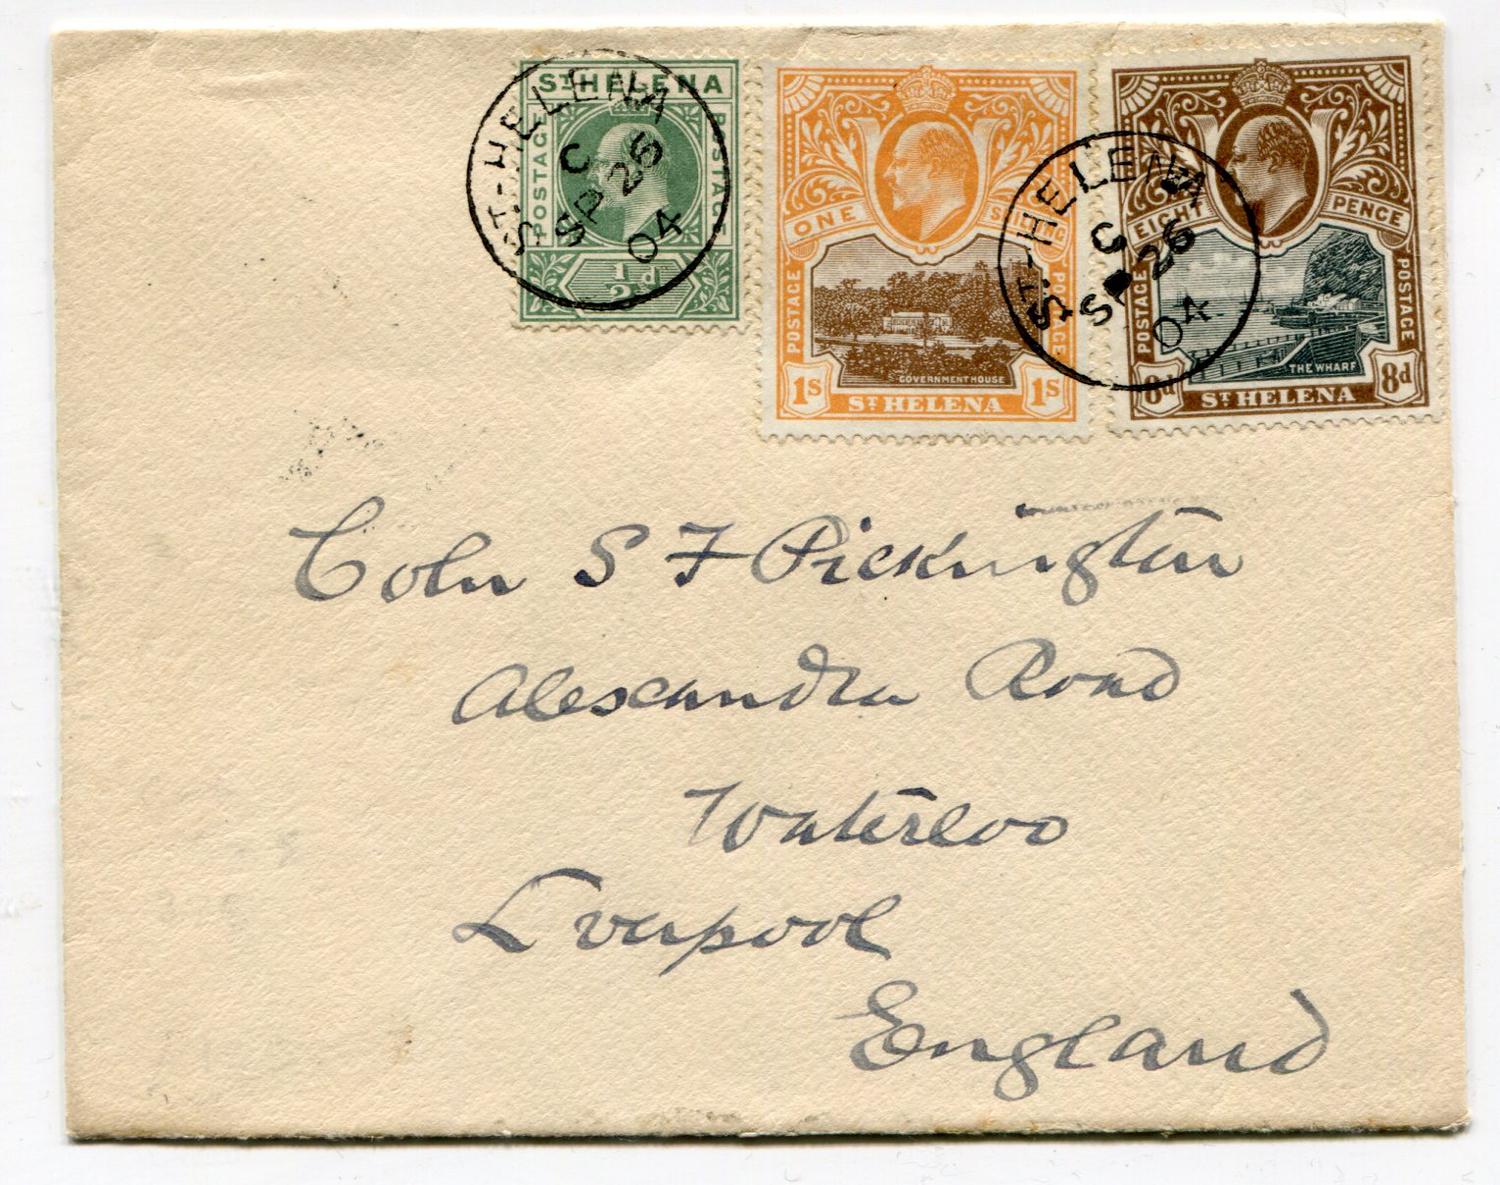 ST HELENA
POSTAGE
POSTAGE
½d
ST. HELENA
C
SP 26
04
ONE SHILLING
POSTAGE
POSTAGE
GOVERNMENT HOUSE
1s ST HELENA 1s
EIGHT PENCE
POSTAGE
POSTAGE
THE WHARF
8d ST HELENA 8d
ST. HELENA
C
SP 26
04
Coln S F Pickington
Alexandra Road
Waterloo
Liverpool
England